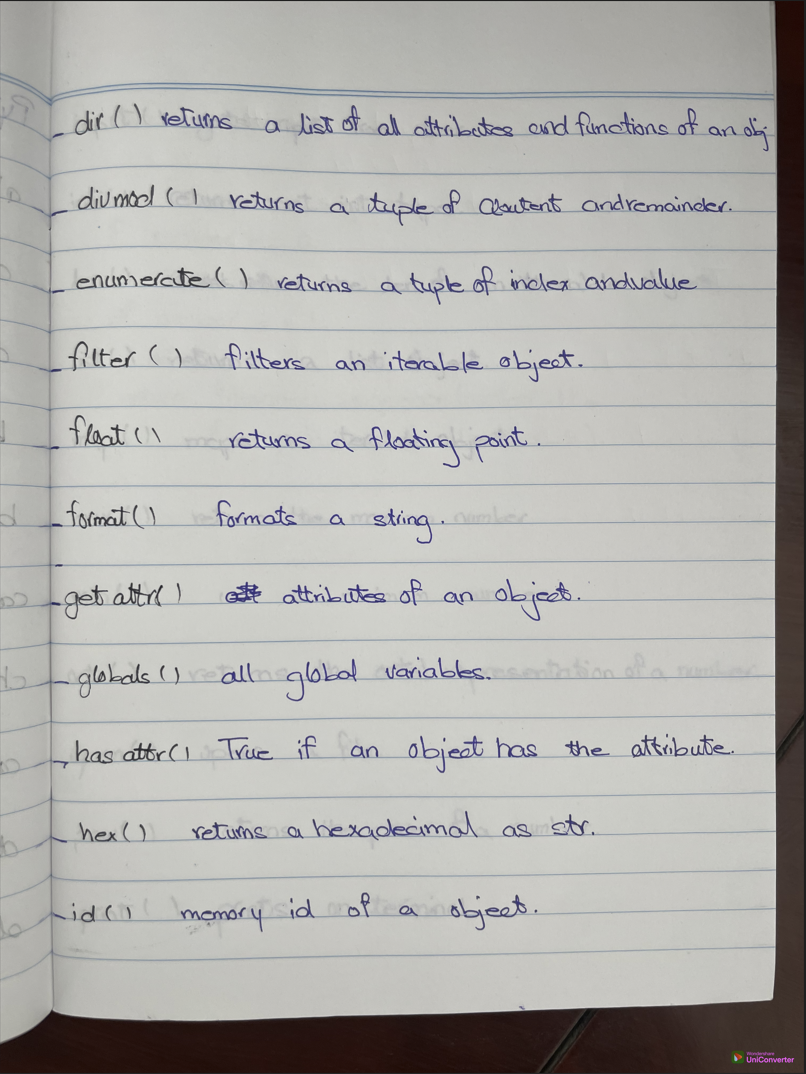 - dir() returns a list of all attributes and functions of an obj
- divmod() returns a tuple of and remainder.
- enumerate() returns a tuple of index and value
- filter() filters an iterable object.
- float() returns a floating point.
- format() formats a string.
- get attr() attributes of an object.
- globals() all global variables.
- has attr() True if an object has the attribute.
- hex() returns a hexadecimal as str.
- id() memory id of a object.
Wondershare
UniConverter